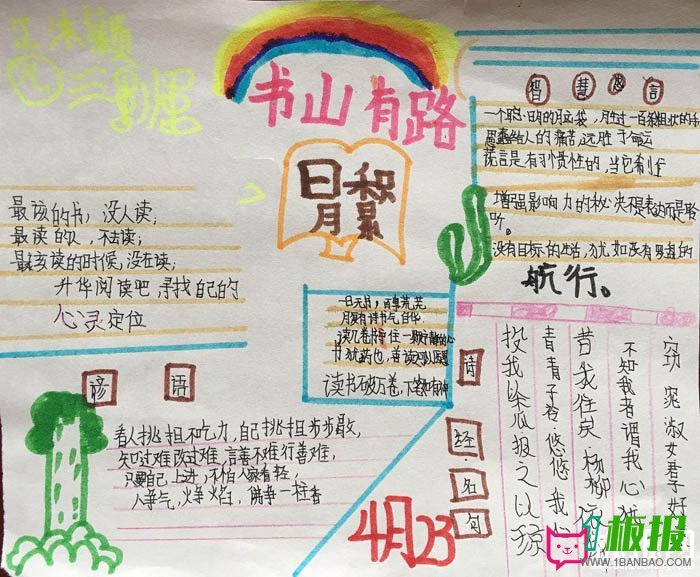 三影星
书山有路
日积
月累
智慧感言
一个聪明的
人的痛苦,远胜于命运
谎言是有习惯性的,当它制住
增强影响力的秘诀不是表达而是聆
听。
没有目标的生活,犹如没有罗盘的
航行。
最该的书,没人读;
最读的人,不去读;
最该读的时候,没在读;
升华阅读吧寻找自己的
心灵定位
一日无书,百事荒芜
读书破万卷,下笔如有神
谚语
看人挑担不吃力,自己挑担步步歇,
知过难改过难,言善不难行善难,
只要自己上进,不怕人家看轻,
人争气,火争焰,佛争一柱香
4月23
诗经名句
窈窕淑女君子好
不知我者谓我心
昔我往矣杨柳依
青青子衿悠悠我
投我以木瓜报之以琼
板报
WWW.1BANBAO.COM